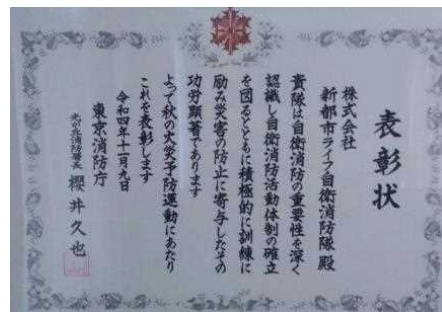 表彰状
株式会社
新都市ライフ自衛消防隊 殿
貴隊は自衛消防の重要性を深く
認識し自衛消防活動体制の確立
を図るとともに積極的に訓練に
励み災害の防止に寄与したその
功労顕著であります
よって秋の火災予防運動にあたり
これを表彰します
令和四年十一月九日
東京消防庁
光が丘消防署長 櫻井久也